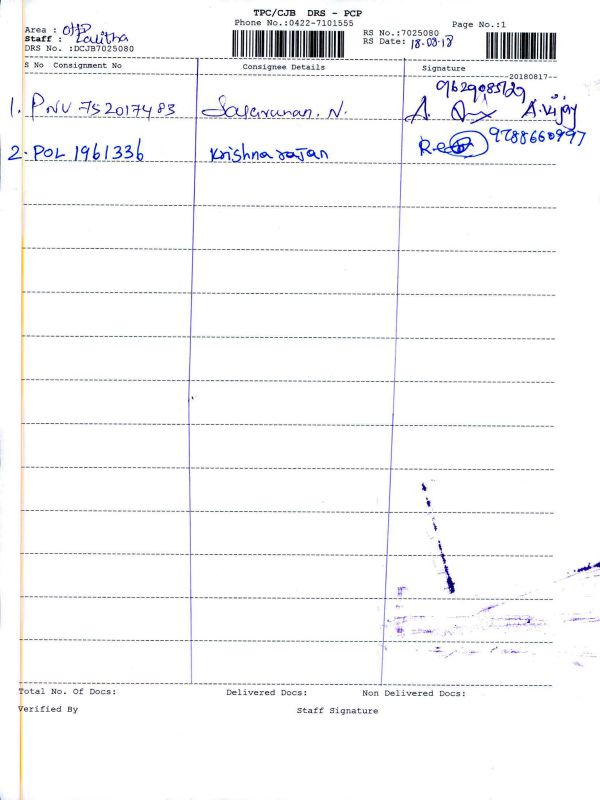 TPC/CJB DRS - PCP
Phone No.:0422-7101555
Page No.:1
Area : OTP
Staff : Lalitha
DRS No. :DCJB7025080
RS No.:7025080
RS Date: 18-08-18
S No Consignment No Consignee Details Signature
--20180817--
9629085129
1. PNV 752017483 Saravanan. N. A. A.Vijay
2. POL 1961336 Krishna rajan 9788660997
Total No. Of Docs: Delivered Docs: Non Delivered Docs:
Verified By Staff Signature